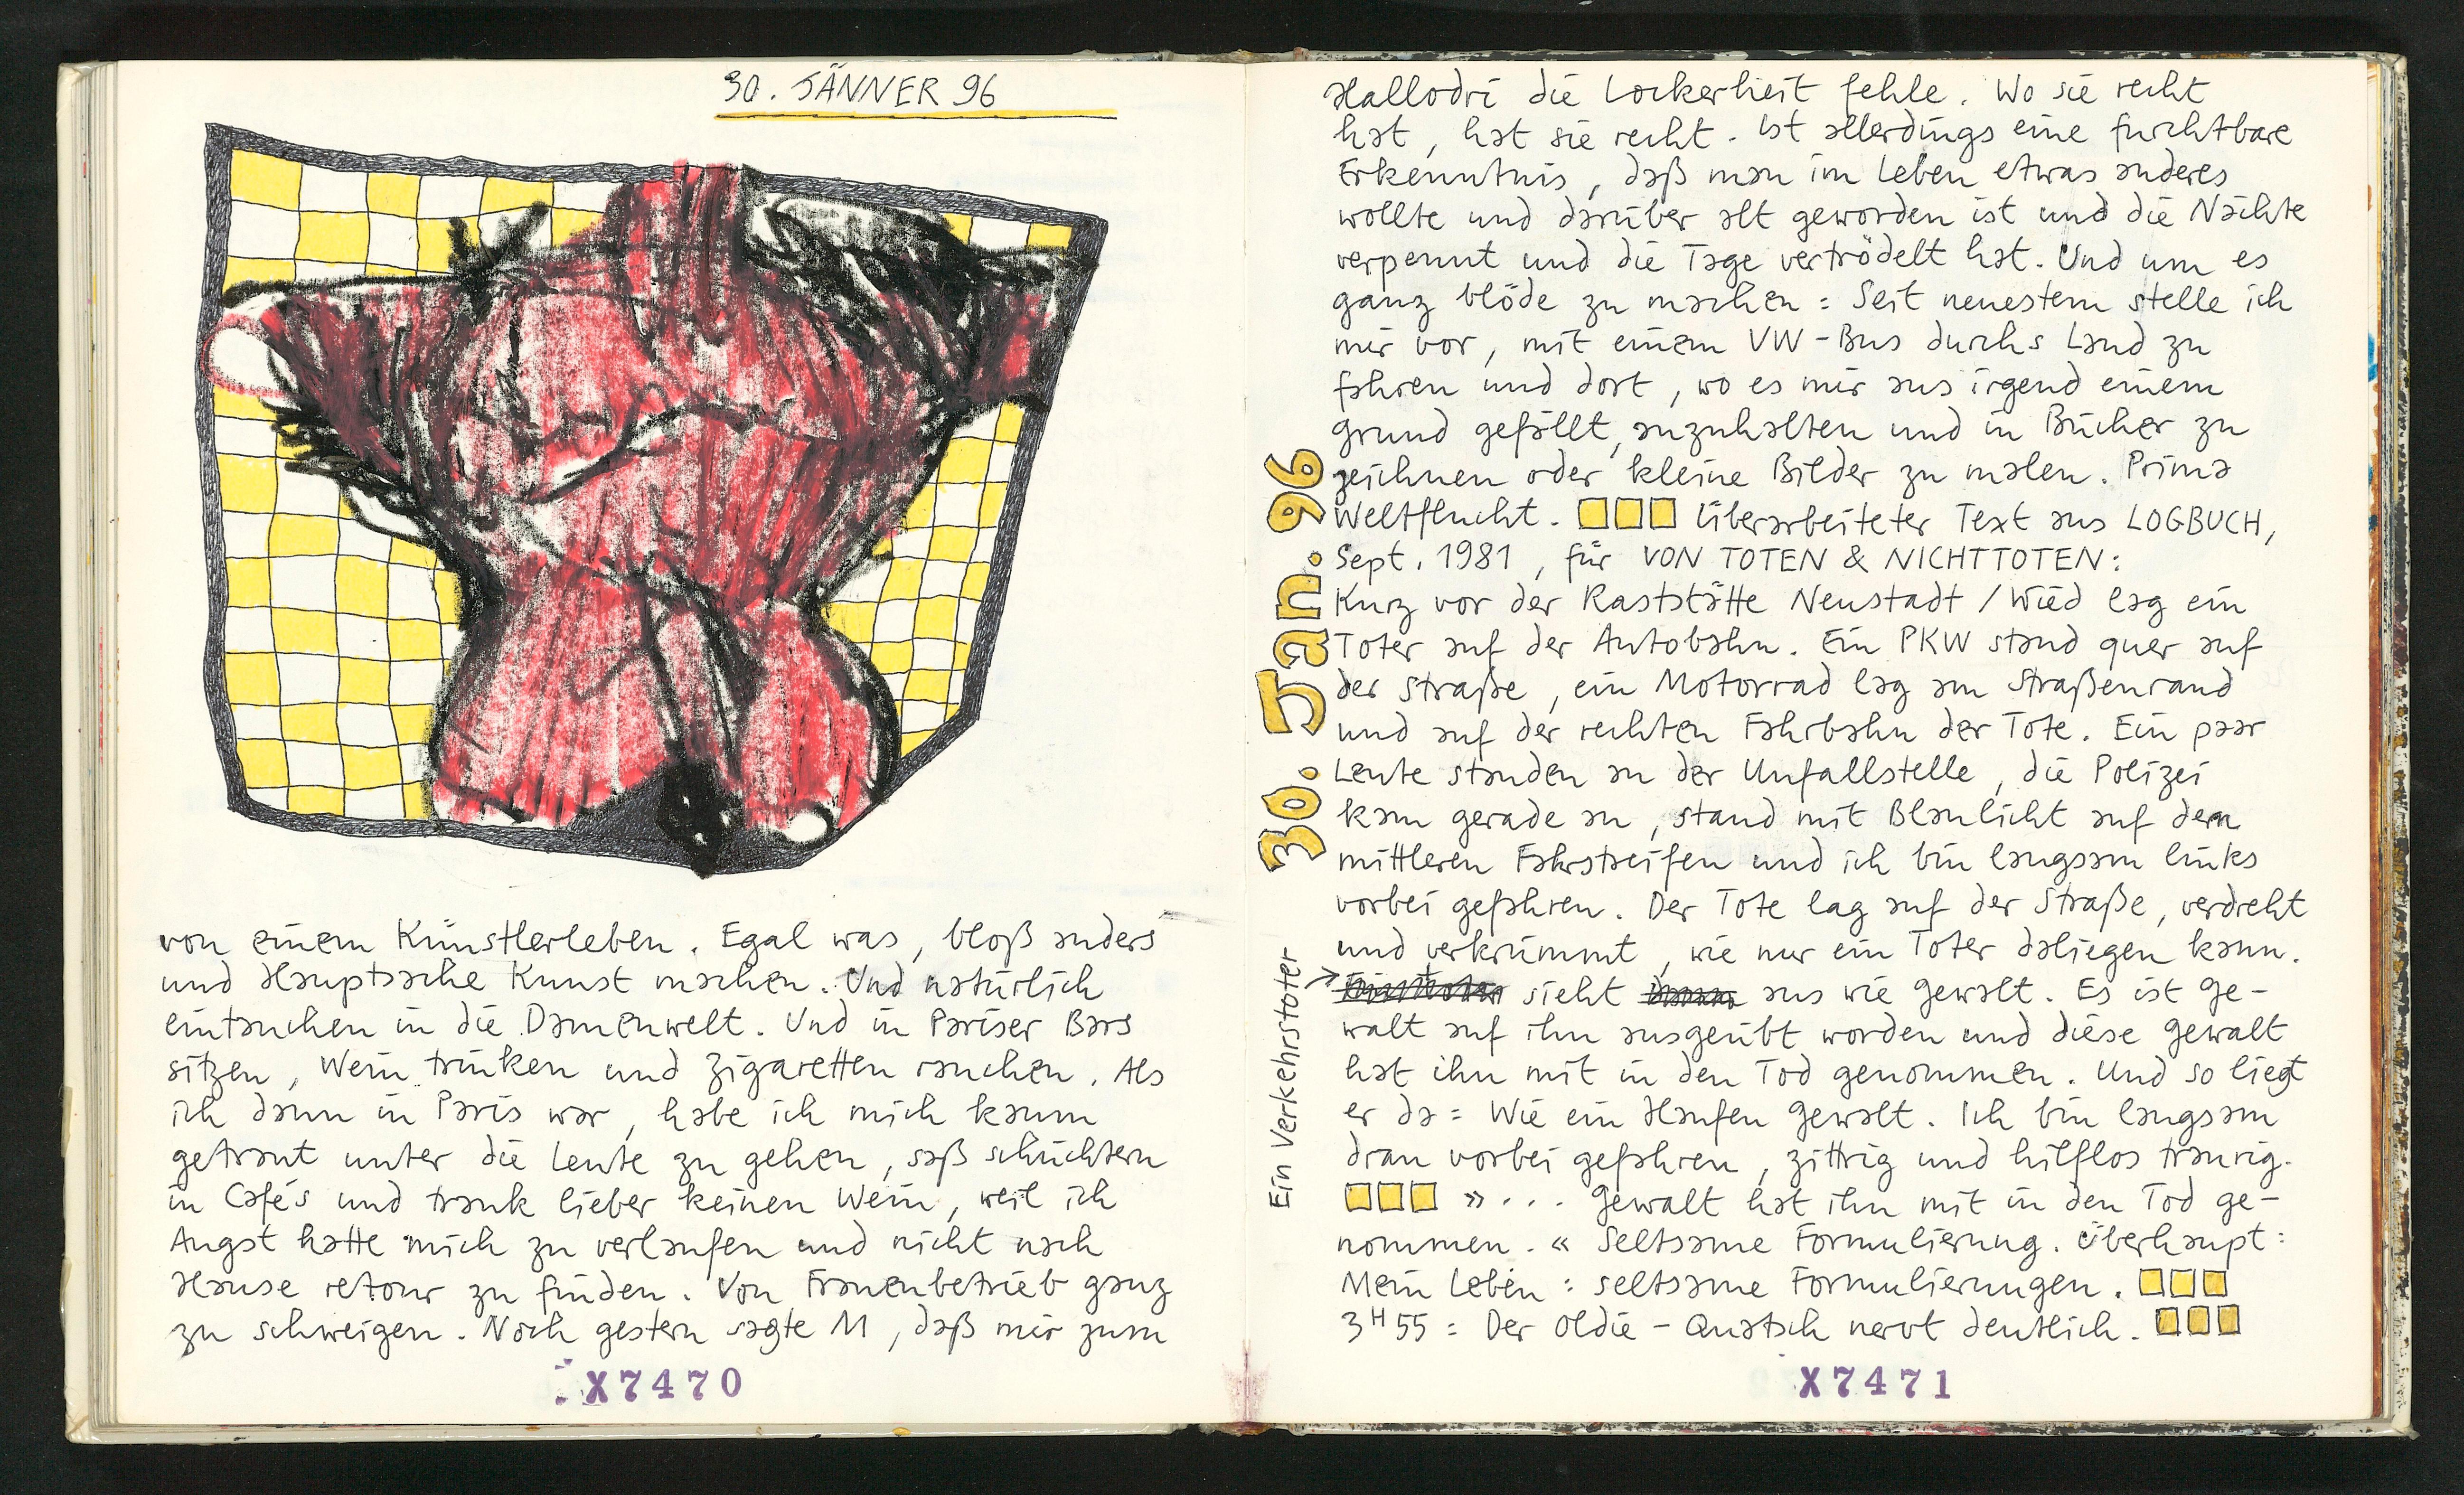 30. JÄNNER 96
von einem Künstlerleben. Egal was, bloß anders
und Hauptsache Kunst machen. Und natürlich
eintauchen in die Damenwelt. Und in Pariser Bars
sitzen, Wein trinken und Zigaretten rauchen. Als
ich dann in Paris war, habe ich mich kaum
getraut unter die Leute zu gehen, saß schüchtern
in Cafés und trank lieber keinen Wein, weil ich
Angst hatte mich zu verlaufen und nicht nach
Hause retour zu finden. Von Frauenbetrieb ganz
zu schweigen. Noch gestern sagte M, daß mir zum
X7470
Hallodri die Lockerheit fehle. Wo sie recht
hat, hat sie recht. Ist allerdings eine furchtbare
Erkenntnis, daß man im Leben etwas anderes
wollte und darüber alt geworden ist und die Nächte
verpennt und die Tage vertrödelt hat. Und um es
ganz blöde zu machen: Seit neuestem stelle ich
mir vor, mit einem VW-Bus durchs Land zu
fahren und dort, wo es mir aus irgend einem
Grund gefällt, anzuhalten und in Bücher zu
zeichnen oder kleine Bilder zu malen. Prima
Weltflucht. Überarbeiteter Text aus LOGBUCH,
Sept. 1981, für VON TOTEN & NICHTTOTEN:
Kurz vor der Raststätte Neustadt/Wied lag ein
Toter auf der Autobahn. Ein PKW stand quer auf
der Straße, ein Motorrad lag am Straßenrand
und auf der rechten Fahrbahn der Tote. Ein paar
Leute standen an der Unfallstelle, die Polizei
kam gerade an, stand mit Blaulicht auf dem
mittleren Fahrstreifen und ich bin langsam links
vorbei gefahren. Der Tote lag auf der Straße, verdreht
und verkrümmt, wie nur ein Toter daliegen kann.
sieht aus wie Gewalt. Es ist Ge-
walt auf ihn ausgeübt worden und diese Gewalt
hat ihn mit in den Tod genommen. Und so liegt
er da: Wie ein Haufen Gewalt. Ich bin langsam
dran vorbei gefahren, zittrig und hilflos traurig.
»... Gewalt hat ihn mit in den Tod ge-
nommen.« Seltsame Formulierung. Überhaupt:
Mein Leben: seltsame Formulierungen.
3H55: Der Oldie-Quatsch nervt deutlich.
30. Jan. 96
Ein Verkehrstoter
X7471